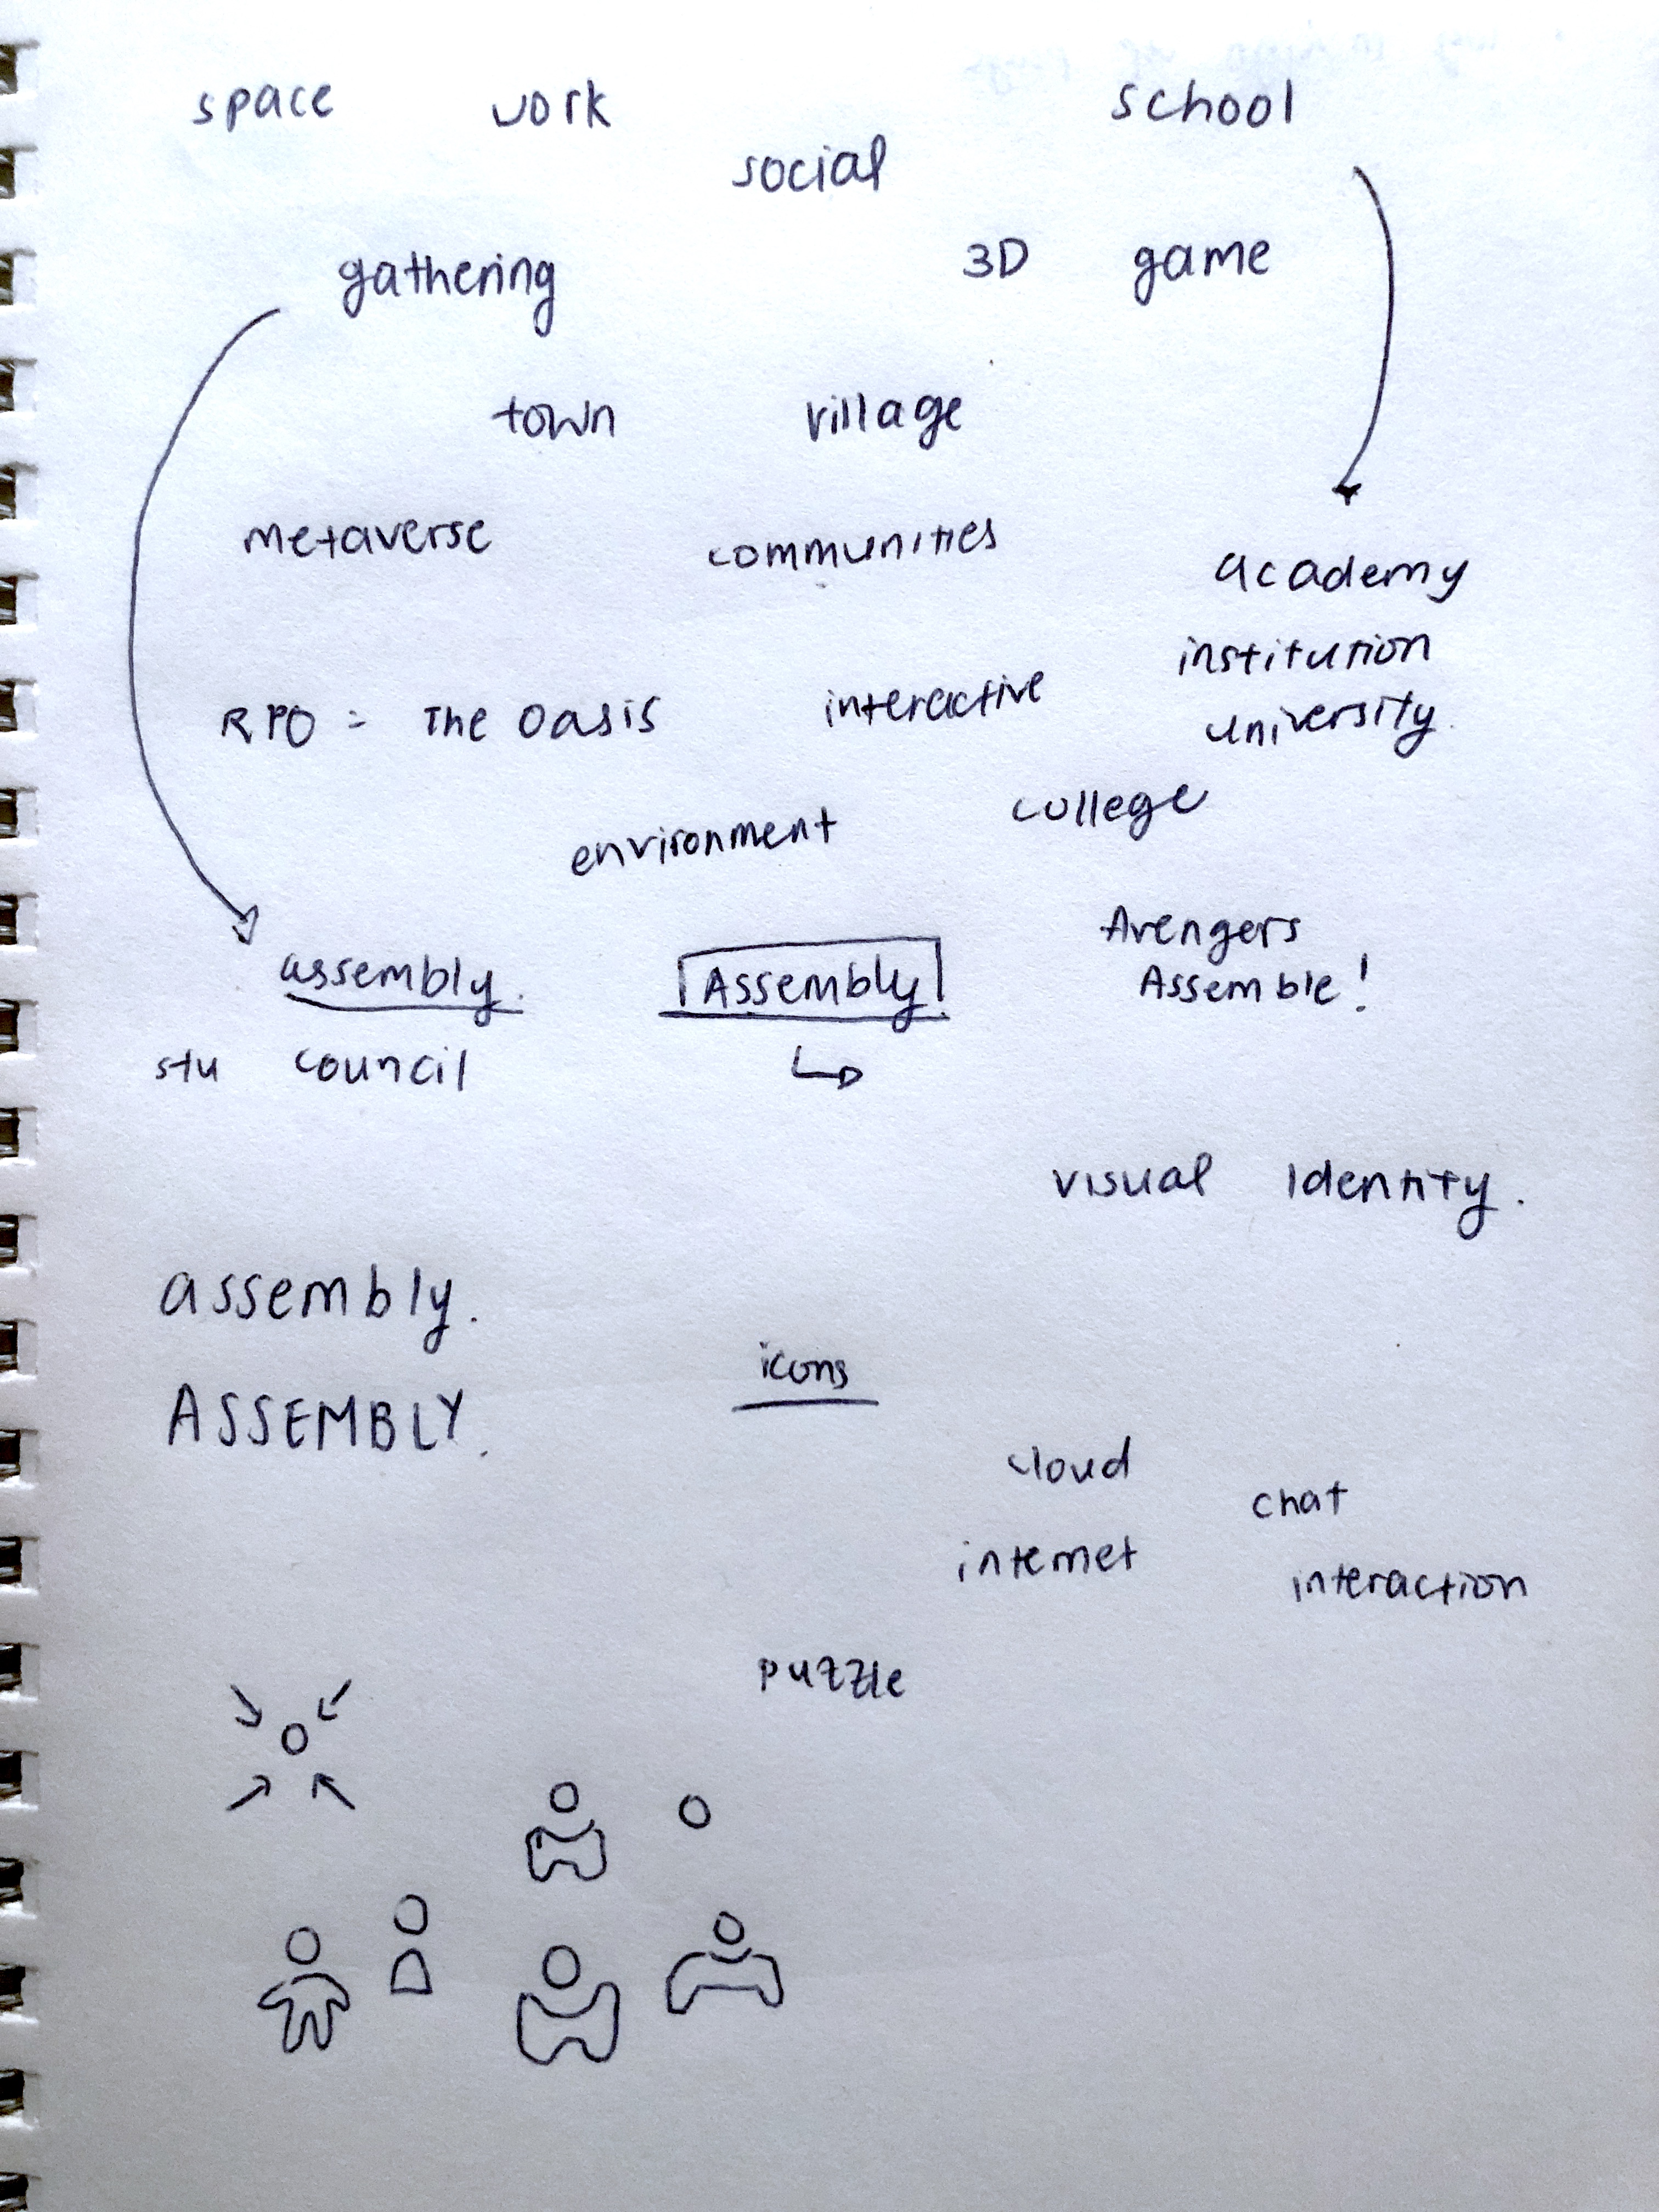 space work school
social
gathering 3D game
town village
metaverse communities
academy
institution
RPO = The Oasis interactive
university.
college
environment
Avengers
assembly. Assembly Assemble!
stu council
visual identity.
assembly.
icons
ASSEMBLY.
cloud
chat
internet
interaction
puzzle